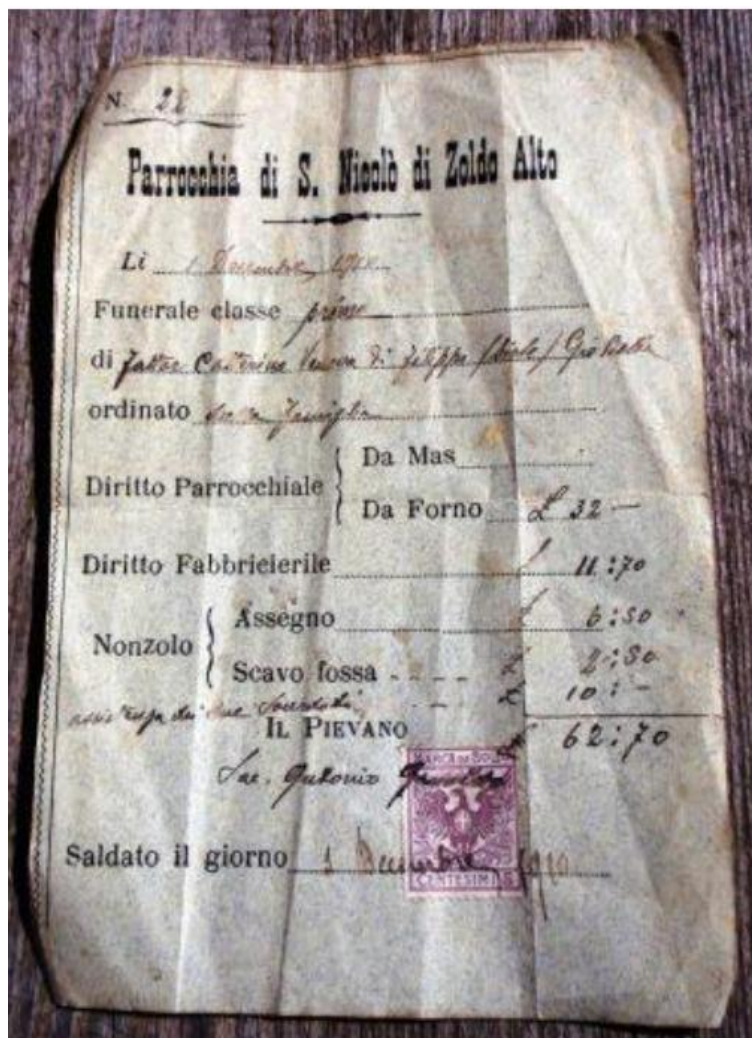 N. 22
Parrocchia di S. Nicolò di Zoldo Alto
Li 1 Decembre
Funerale classe prima
di Fattor Catterina Vedova di Filippo
ordinato famiglia
Diritto Parrocchiale
Da Mas
Da Forno £ 32 —
Diritto Fabbricierile £ 11:70
Nonzolo
Assegno £ 6:50
Scavo fossa £ 2:50
dei due Sacerdoti £ 10:-
IL PIEVANO £ 62:70
Sac. Antonio
MARCA DA BOLLO
CENTESIMI 5
Saldato il giorno 1 Decembre 1910